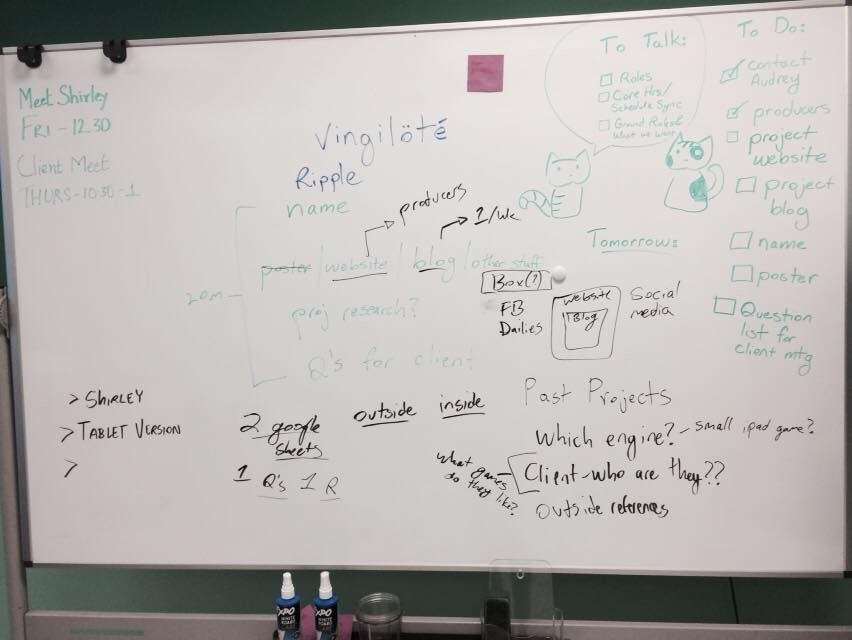 Meet Shirley
FRI - 12.30
Client Meet
THURS - 10:30 - 1
Vingilöté
Ripple
name
producers
1/wk
poster / website / blog / other stuff
20m
proj research?
Q's for client
To Talk:
Roles
Core Hrs/
Schedule Sync
Ground Rules &
what we want
To Do:
contact
Audrey
producers
project
website
project
blog
name
poster
Question
list for
client mtg
Tomorrow:
Box(?)
FB
Dailies
website
Blog
Social
media
> SHIRLEY
> TABLET VERSION
>
2 google
sheets
1 Q's 1 R
outside inside
Past Projects
Which engine? - small ipad game?
what games
do they like?
Client - who are they??
Outside references
EXPO
WHITE
BOARD
EXPO
WHITE
BOARD